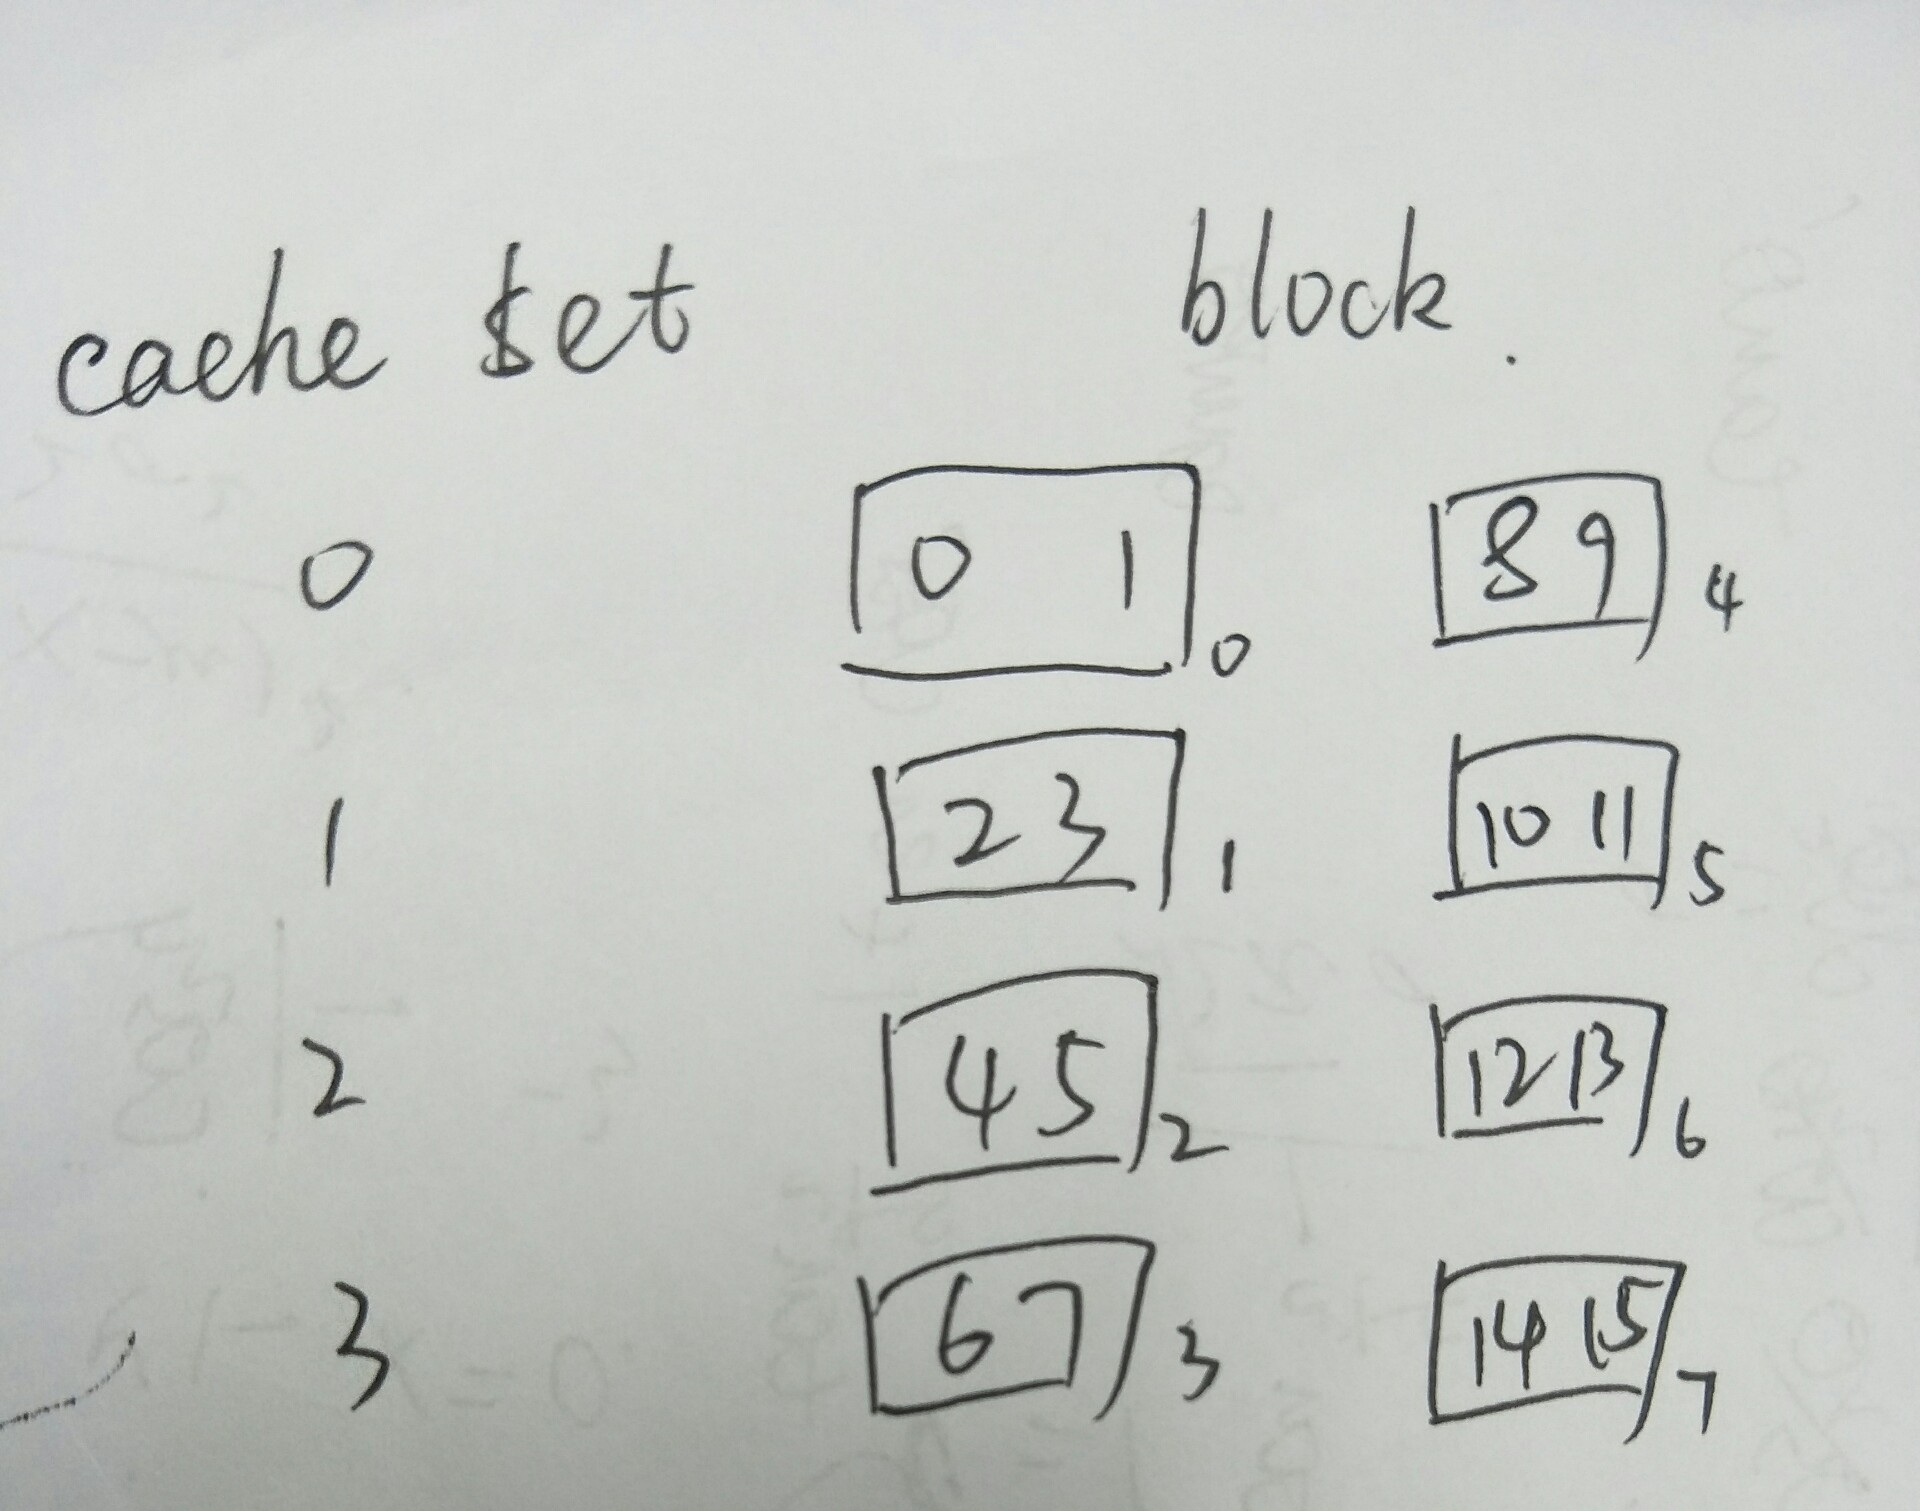 cache set block.
0 0 1 0 8 9 4
1 2 3 1 10 11 5
2 4 5 2 12 13 6
3 6 7 3 14 15 7